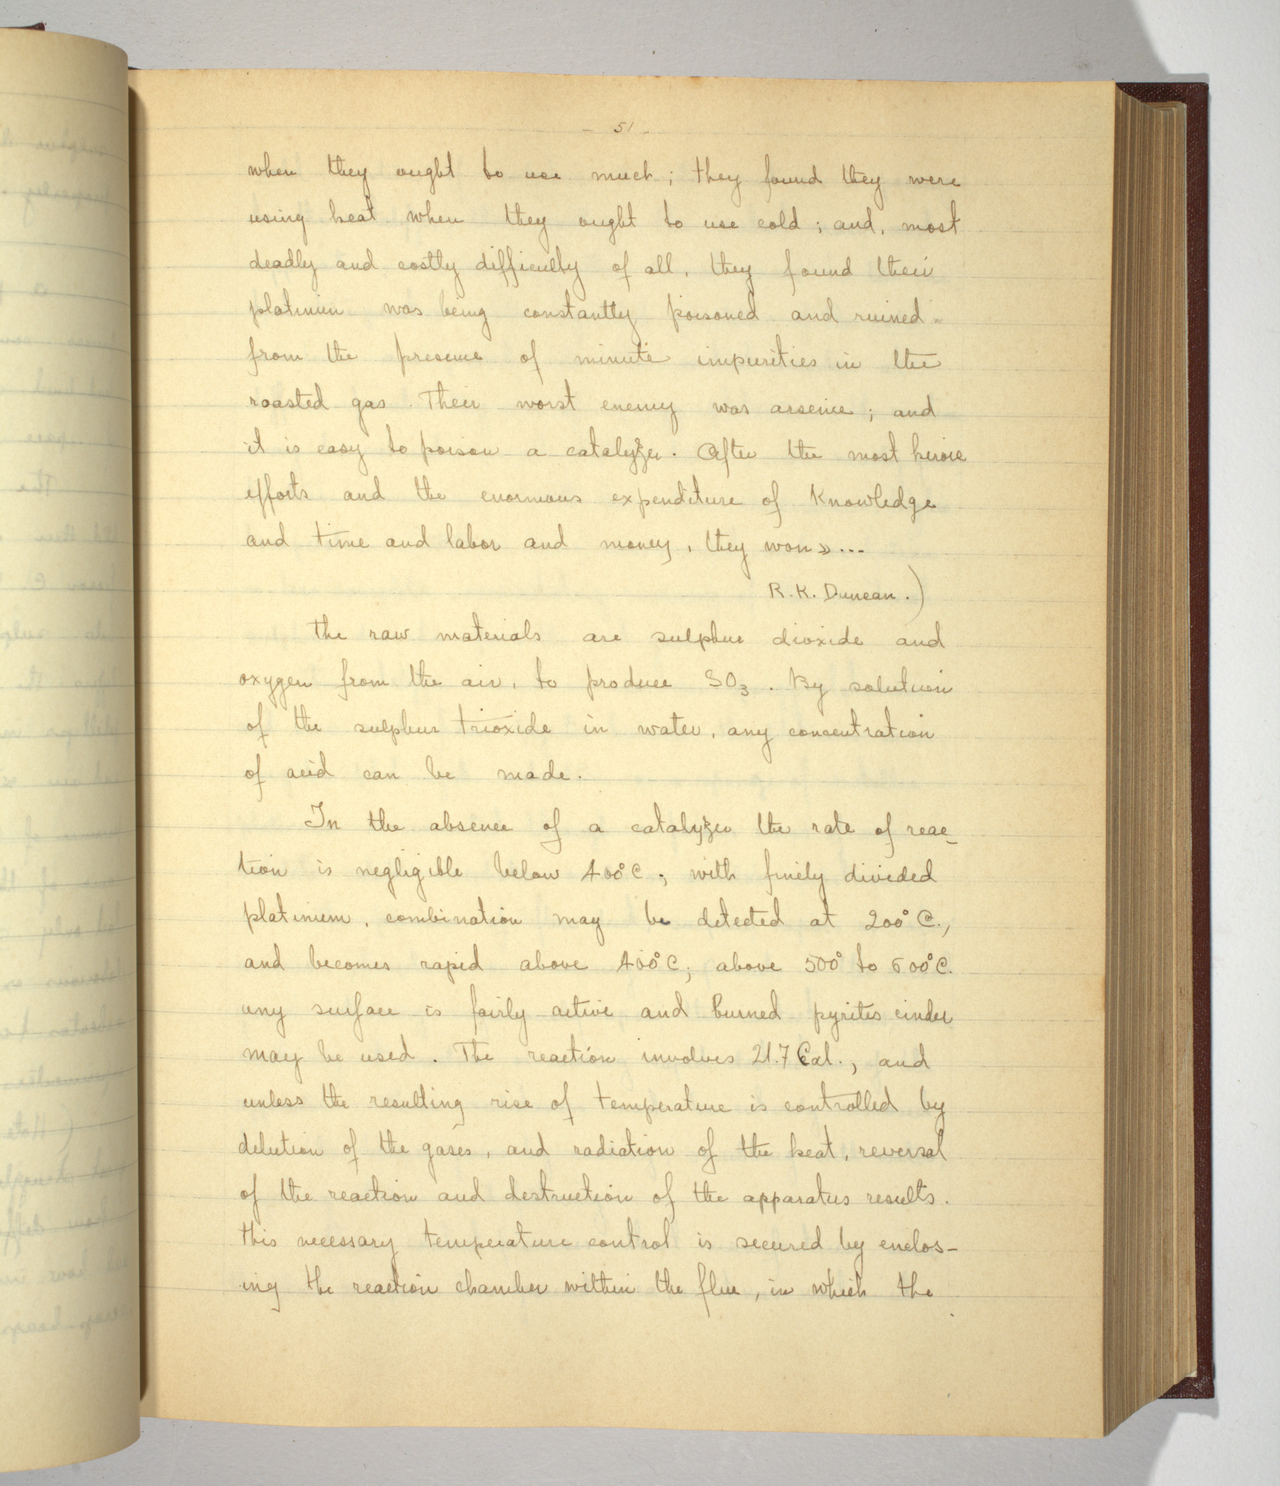 - 51 -
when they ought to use much; they found they were
using heat when they ought to use cold; and, most
deadly and costly difficulty of all, they found their
platinum was being constantly poisoned and ruined
from the presence of minute impurities in the
roasted gas. Their worst enemy was arsenic; and
it is easy to poison a catalyzer. After the most heroic
efforts and the enormous expenditure of knowledge
and time and labor and money, they won»...
R.K. Duncan.)
The raw materials are sulphur dioxide and
oxygen from the air, to produce SO₃. By solution
of the sulphur trioxide in water, any concentration
of acid can be made.
In the absence of a catalyzer the rate of reac-
tion is negligible below 400°C; with finely divided
platinum, combination may be detected at 200°C.,
and becomes rapid above 400°C; above 500° to 600°C.
any surface is fairly active and burned pyrites cinder
may be used. The reaction involves 21.7 Cal., and
unless the resulting rise of temperature is controlled by
dilution of the gases, and radiation of the heat, reversal
of the reaction and destruction of the apparatus results.
This necessary temperature control is secured by enclos-
ing the reaction chamber within the flue, in which the